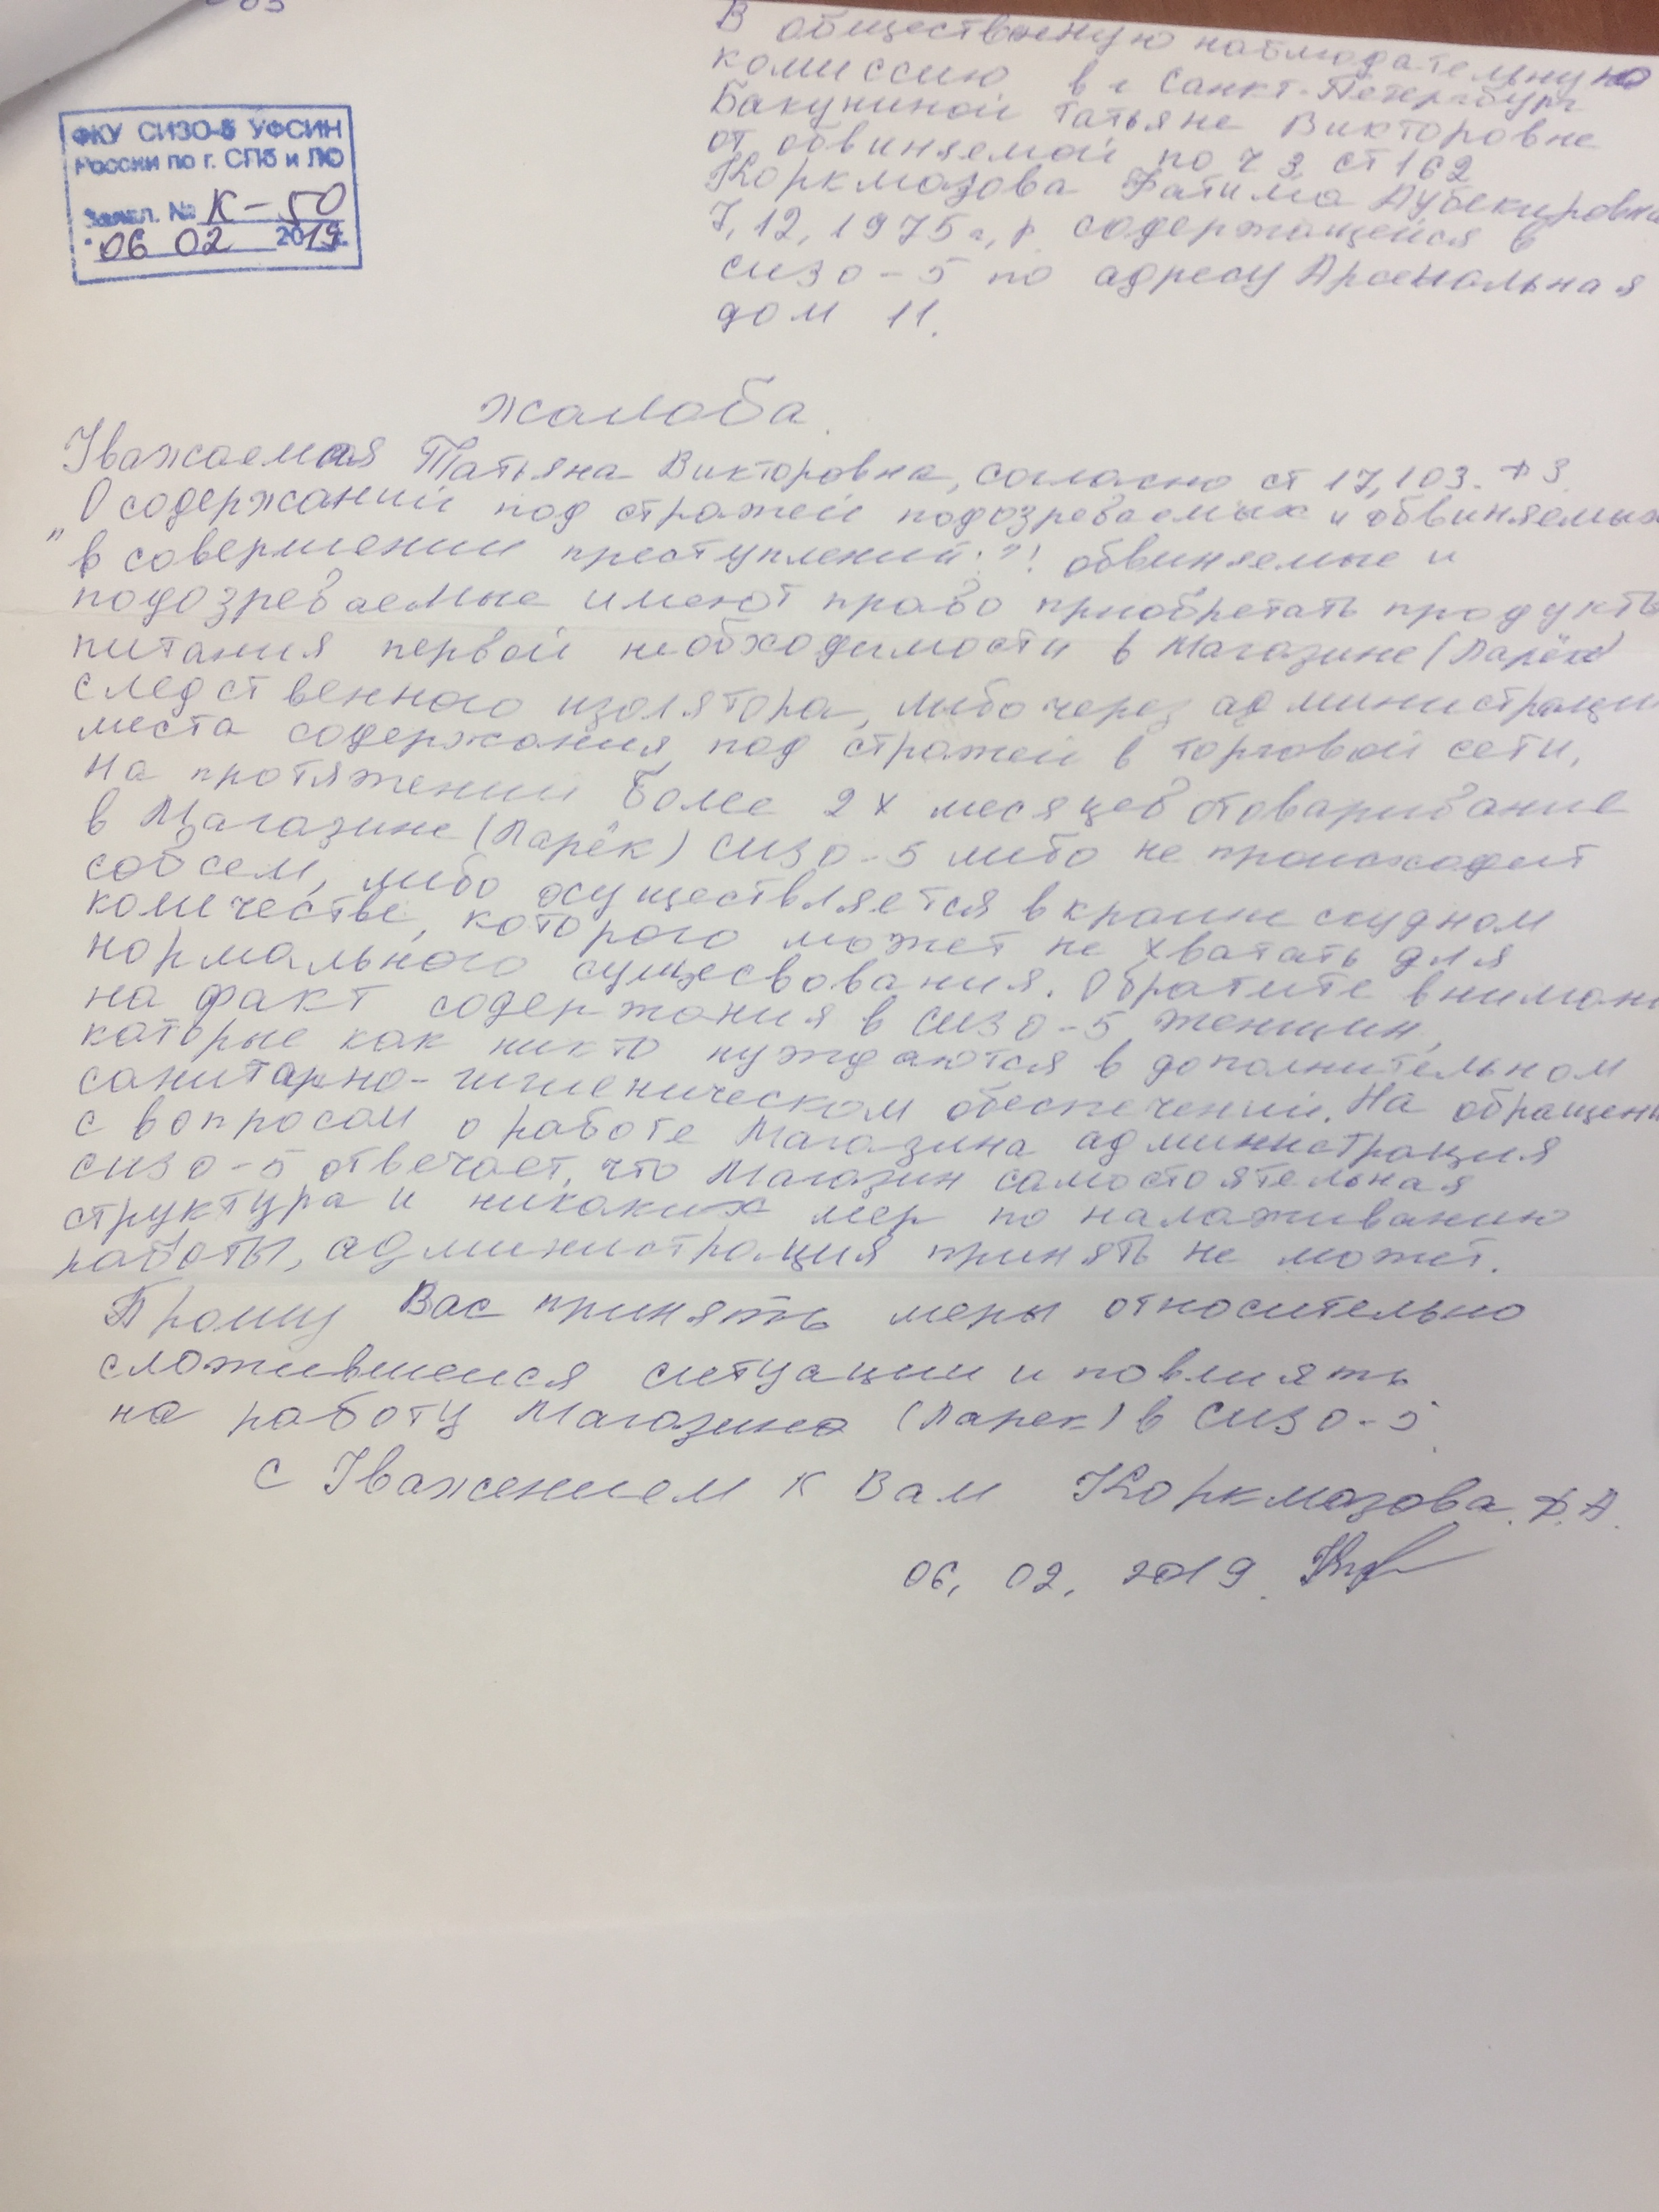 03
В общественную наблюдательную
комиссию в г Санкт-Петербург
Бакуниной Татьяне Викторовне
от обвиняемой по ч 3 ст 162
Коркмазова Фатима Аубекировна
7,12,1975г,р содержащейся в
сизо-5 по адресу Арсенальная
дом 11.
ФКУ СИЗО-5 УФСИН
России по г. СПб и ЛО
Заявл. № К-50
"06 02 2019г.
жалоба.
Уважаемая Татьяна Викторовна, согласно ст 17,103. ФЗ.
О содержании под стражей подозреваемых и обвиняемых
"в совершении преступлений:"! обвиняемые и
подозреваемые имеют право приобретать продукты
питания первой необходимости в Магазине (Ларёк)
следственного изолятора, либо через администраци
места содержания под стражей в торговой сети,
На протяжении более 2х месяцев отоваривание
в Магазине (Ларёк) сизо-5 либо не происходит
совсем, либо осуществляется в крайне скудном
количестве, которого может не хватать для
нормального сущесвования. Обратите внимани
на факт содержания в сизо-5 женщин,
каторые как никто нуждаются в дополнительном
санитарно-гигиеническом обеспечении. На обращени
с вопросом о работе Магазина администрация
сизо-5 отвечает, что Магазин самостоятельная
структура и никаких мер по налаживанию
работы, администрация принять не может.
Прошу Вас принять меры относительно
сложившейся ситуации и повлиять
на работу Магазина (Ларек) в сизо-5.
С Уважением к Вам Коркмазова. Ф.А.
06. 02. 2019.